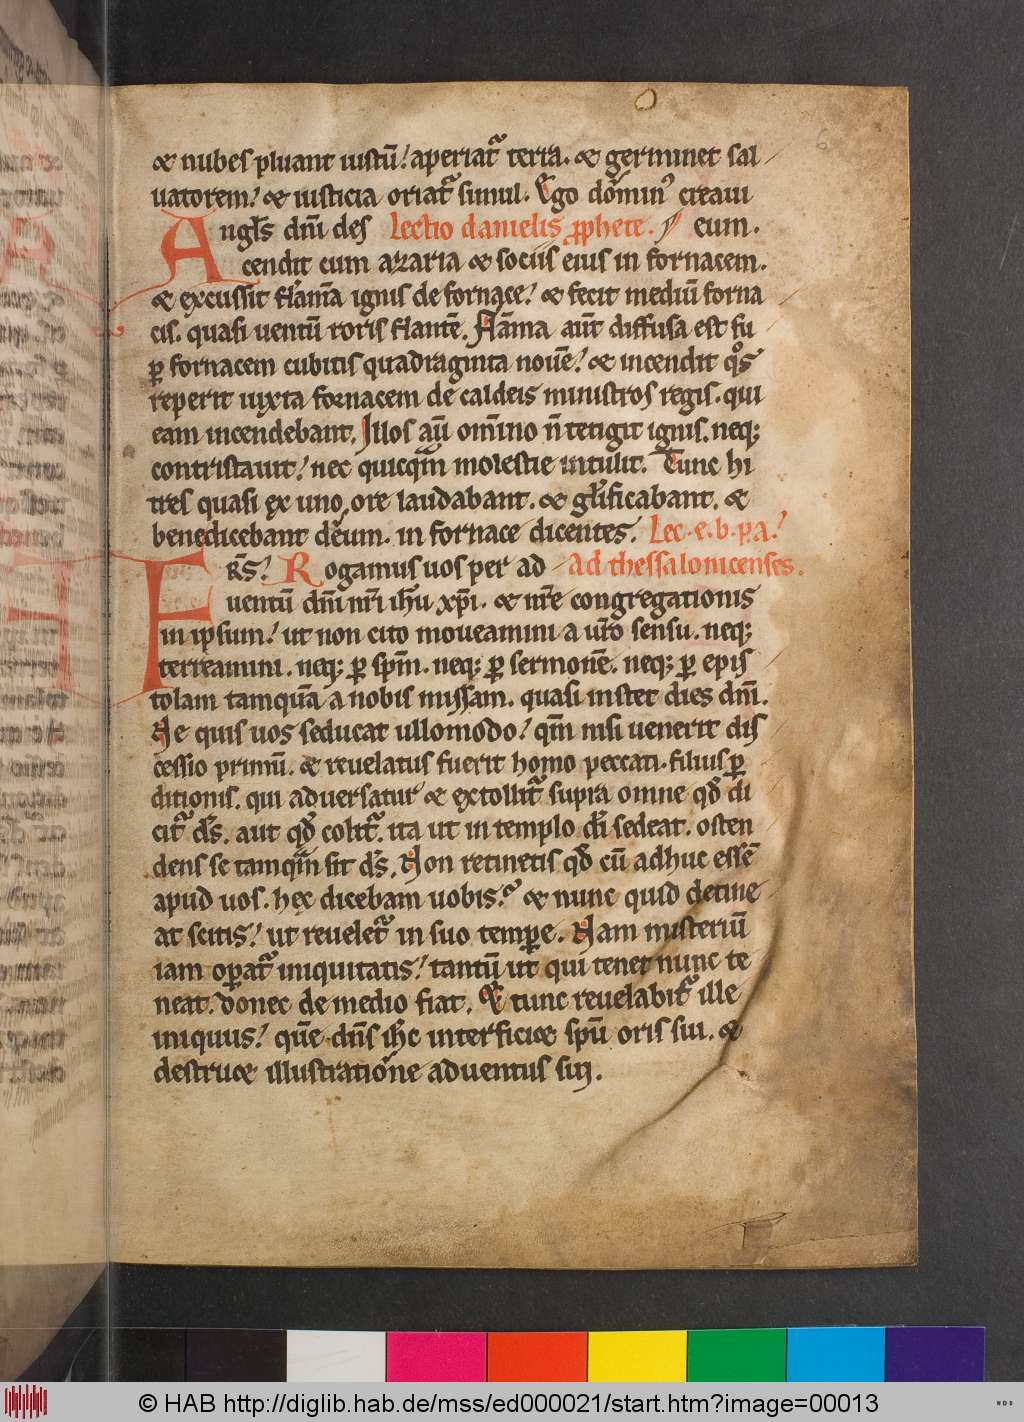 & nubes pluant iustū! aperiat᷑ terra. & germinet sal
uatorem! & iusticia oriat᷑ simul. Ego dominꝰ creaui
Angls dn̄i des Lectio danielis ꝓphete. eum.
cendit cum azaria & sociis eius in fornacem.
& excussit flam̄a ignis de fornace! & fecit mediū forna
cis. quasi uentū roris flantē. Flāma aūt diffusa est su
ꝑ fornacem cubitis quadraginta nouē! & incendit qͦs
reperit iuxta fornacem de caldeis ministros regis. qui
eam incendebant. Illos aū om̄ino n̄ tetigit ignis. neq;
contristauit! nec quicqm̄ molestie intulit. Tunc hi
tres quasi ex uno ore laudabant. & glīficabant. &
benedicebant deum. in fornace dicentes. Lec. e. b. pa!
FRS̄! Rogamus uos per ad Ad thessalonicenses.
uentū dn̄i nr̄i ih̄u xp̄i. & nr̄e congregationis
in ipsum! ut non cito moueamini a ur̄o sensu. neq;
terreamini. neq; ꝑ spm̄. neq; ꝑ sermonē. neq; ꝑ epis
tolam tamquā a nobis missam. quasi instet dies dn̄i.
Ne quis uos seducat ullomodo! qm̄ nisi uenerit dis
cessio primū. & reuelatus fuerit homo peccati. filius ꝑ
ditionis. qui aduersatur & extollit᷑ supra omne qd̄ di
cit᷑ ds̄. aut qd̄ colit᷑. ita ut in templo dī sedeat. osten
dens se tamqm̄ sit ds̄. Non retinetis qd̄ cū adhuc essē
apud uos. hec dicebam uobis? & nunc quid detine
at scitis! ut reuelet᷑ in suo tempore. Nam misteriū
iam oꝑat᷑ iniquitatis! tantū ut qui tenet nunc te
neat. donec de medio fiat. Et tunc reuelabit᷑ ille
iniquus! quē dn̄s ih̄c interfici& spū oris sui. &
destru& illustratione aduentus sui.
© HAB http://diglib.hab.de/mss/ed000021/start.htm?image=00013